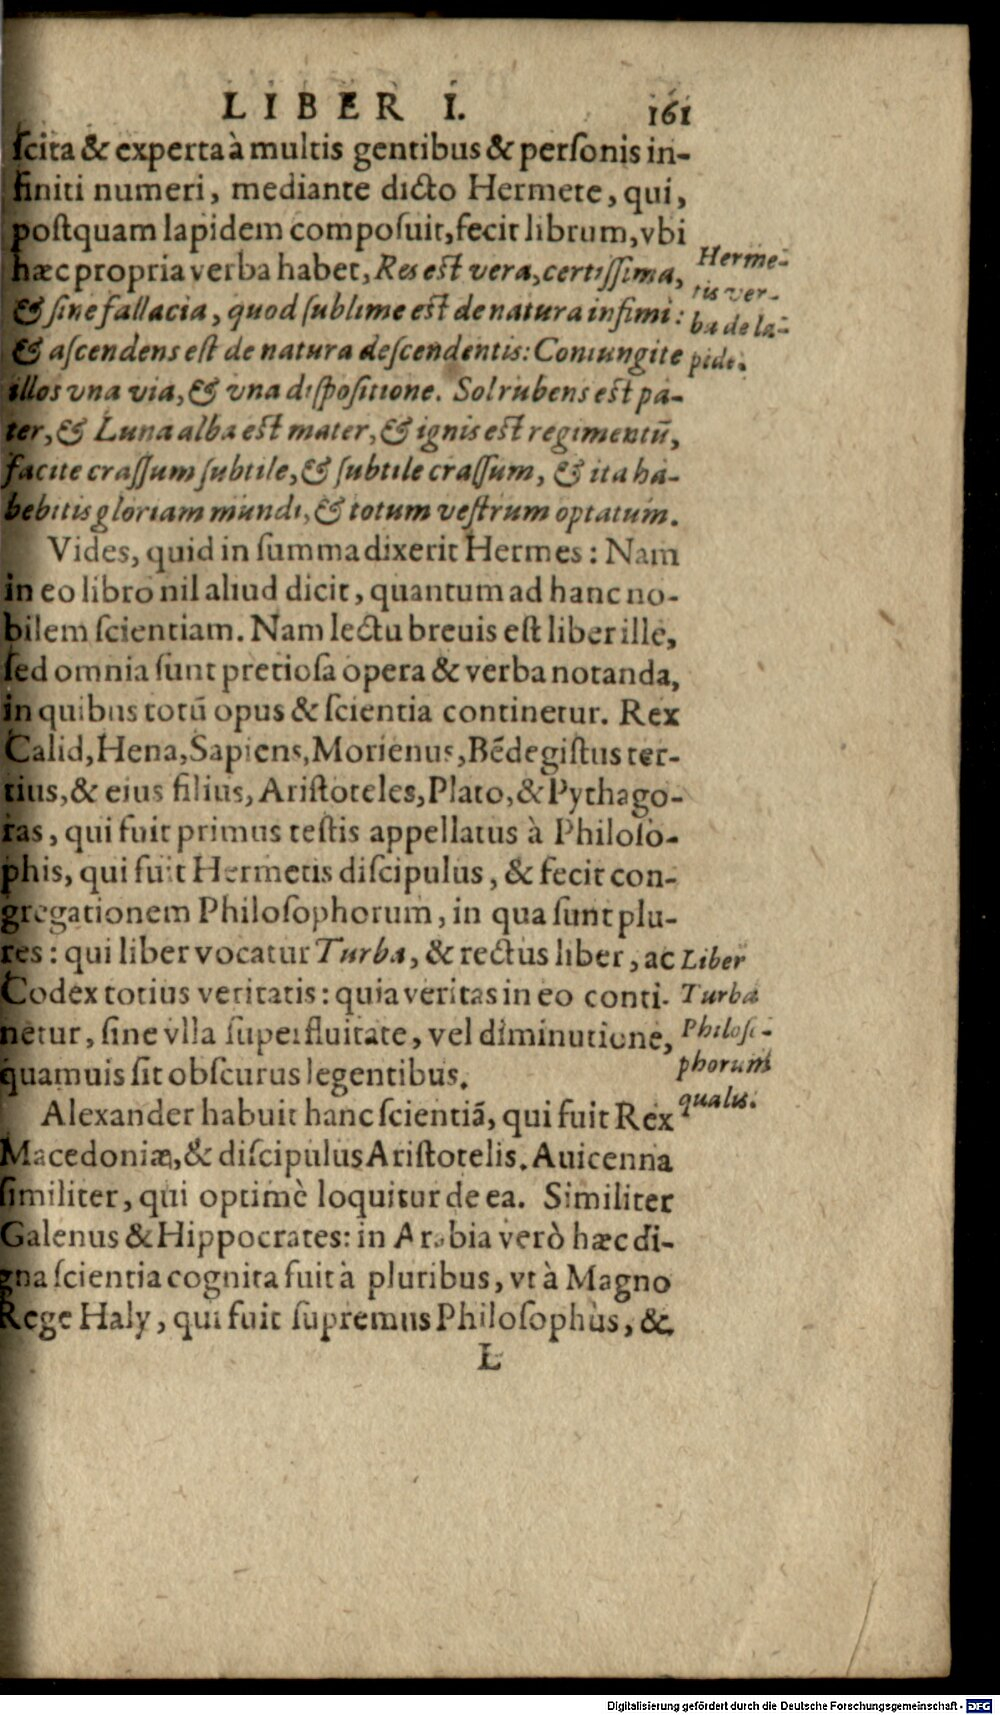 LIBER I. 161
ſcita & experta à multis gentibus & perſonis in-
finiti numeri, mediante dicto Hermete, qui,
poſtquam lapidem compoſuit, fecit librum, vbi
hæc propria verba habet, Res eſt vera, certiſſima,
Herme-
tis ver-
& ſine fallacia, quod ſublime eſt de natura infimi:
ba de la-
& aſcendens eſt de natura deſcendentis: Coniungite
pide.
illos vna via, & vna diſpoſitione. Sol rubens eſt pa-
ter, & Luna alba eſt mater, & ignis eſt regimentū,
facite craſſum ſubtile, & ſubtile craſſum, & ita ha-
bebitis gloriam mundi, & totum veſtrum optatum.
Vides, quid in ſumma dixerit Hermes: Nam
in eo libro nil aliud dicit, quantum ad hanc no-
bilem ſcientiam. Nam lectu breuis eſt liber ille,
ſed omnia ſunt pretioſa opera & verba notanda,
in quibus totū opus & ſcientia continetur. Rex
Calid, Hena, Sapiens, Morienus, Bēdegiſtus ter-
tius, & eius filius, Ariſtoteles, Plato, & Pythago-
ras, qui fuit primus teſtis appellatus à Philoſo-
phis, qui fuit Hermetis diſcipulus, & fecit con-
gregationem Philoſophorum, in qua ſunt plu-
res: qui liber vocatur Turba, & rectus liber, ac
Liber
Codex totius veritatis: quia veritas in eo conti-
Turba
netur, ſine vlla ſuperfluitate, vel diminutione,
Philoſo-
phorum
quamuis ſit obſcurus legentibus.
qualis.
Alexander habuit hanc ſcientiā, qui fuit Rex
Macedoniæ, & diſcipulus Ariſtotelis. Auicenna
ſimiliter, qui optimè loquitur de ea. Similiter
Galenus & Hippocrates: in Arabia verò hæc di-
gna ſcientia cognita fuit à pluribus, vt à Magno
Rege Haly, qui fuit ſupremus Philoſophus, &
L
Digitalisierung gefördert durch die Deutsche Forschungsgemeinschaft - DFG